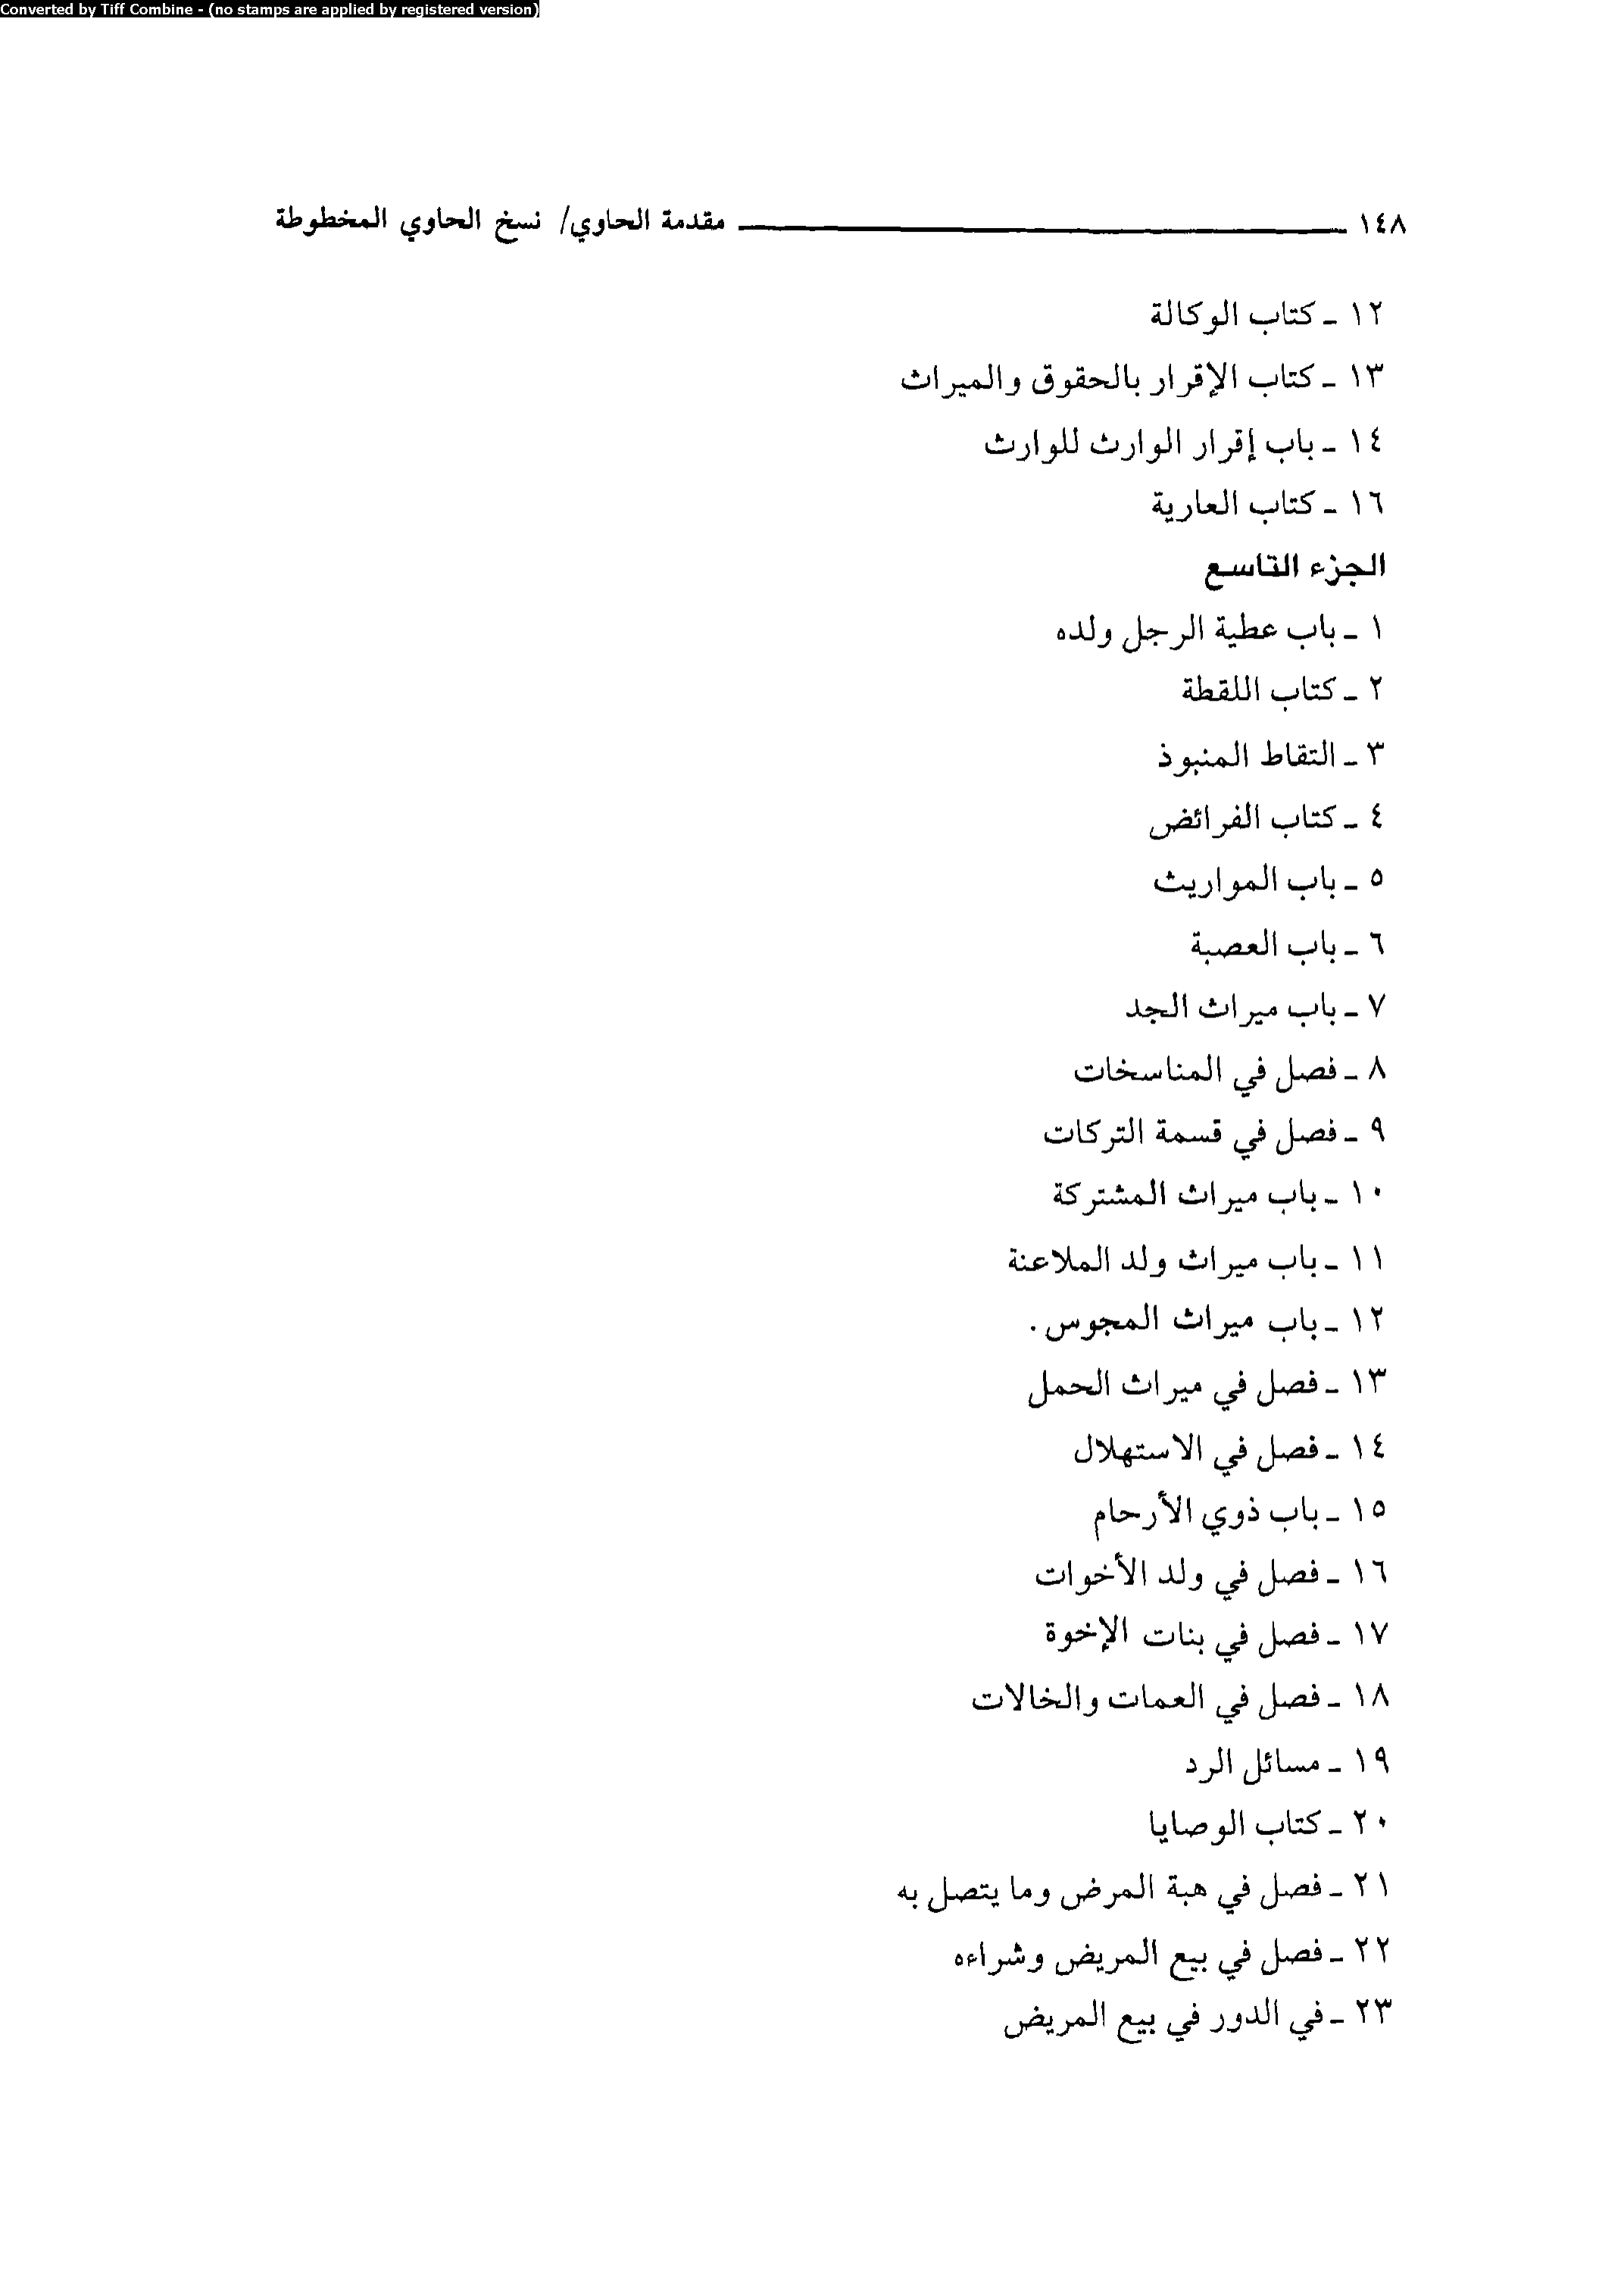 Converted by Tiff Combine - (no stamps are applied by registered version)
١٤٨ مقدمة الحاوي/ نسخ الحاوي المخطوطة
١٢ ـ كتاب الوكالة
١٣ ـ كتاب الإقرار بالحقوق والميراث
١٤ ـ باب إقرار الوارث للوارث
١٦ ـ كتاب العارية
الجزء التاسع
١ ـ باب عطية الرجل ولده
٢ ـ كتاب اللقطة
٣ ـ التقاط المنبوذ
٤ ـ كتاب الفرائض
٥ ـ باب المواريث
٦ ـ باب العصبة
٧ ـ باب ميراث الجد
٨ ـ فصل في المناسخات
٩ ـ فصل في قسمة التركات
١٠ ـ باب ميراث المشتركة
١١ ـ باب ميراث ولد الملاعنة
١٢ ـ باب ميراث المجوس.
١٣ ـ فصل في ميراث الحمل
١٤ ـ فصل في الاستهلال
١٥ ـ باب ذوي الأرحام
١٦ ـ فصل في ولد الأخوات
١٧ ـ فصل في بنات الإخوة
١٨ ـ فصل في العمات والخالات
١٩ ـ مسائل الرد
٢٠ ـ كتاب الوصايا
٢١ ـ فصل في هبة المرض وما يتصل به
٢٢ ـ فصل في بيع المريض وشراءه
٢٣ ـ في الدور في بيع المريض